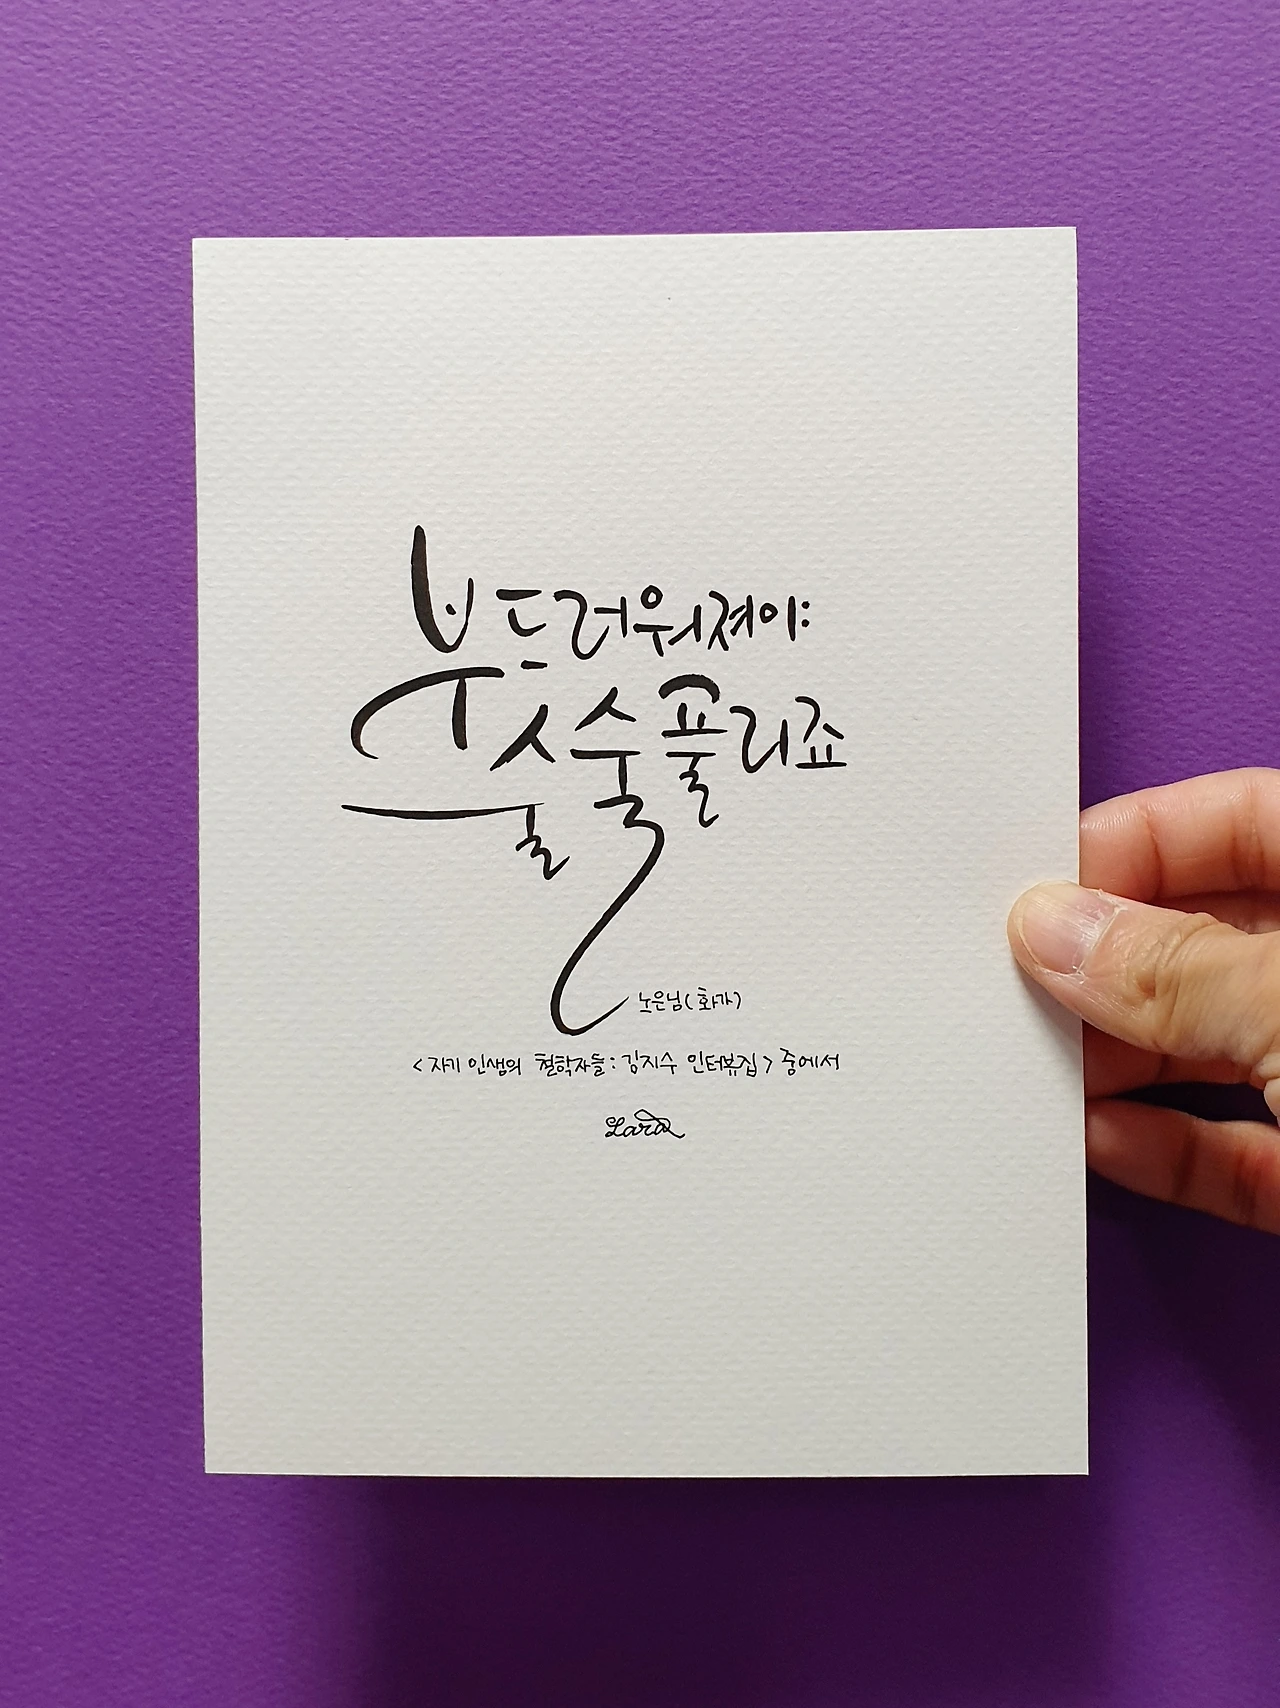 부드러워져야
술술 풀리죠
노은님(화가)
<자기 인생의 철학자들:김지수 인터뷰집> 중에서
Lara